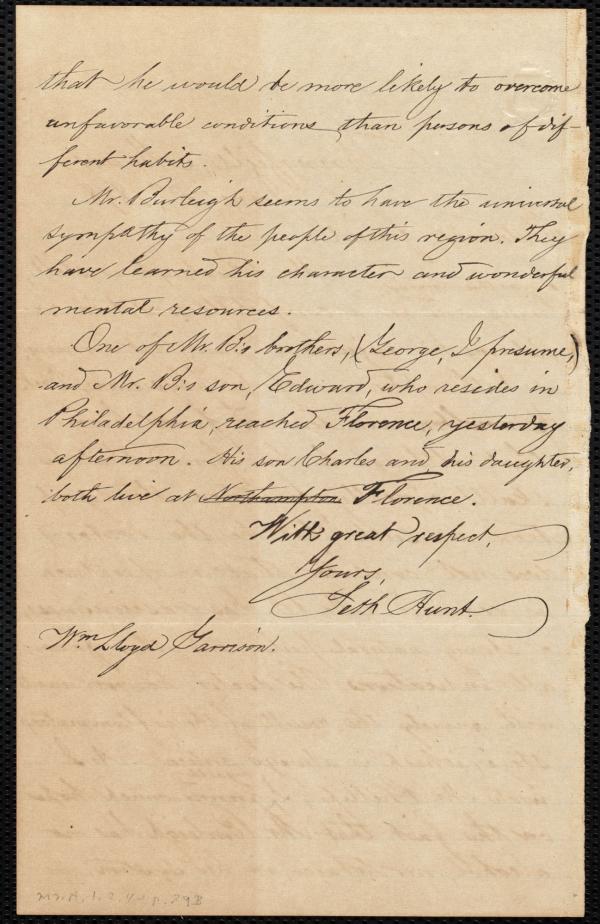 that he would be more likely to overcome
unfavorable conditions than persons of dif-
ferent habits.
Mr. Burleigh seems to have the universal
sympathy of the people of this region. They
have learned his character and wonderful
mental resources.
One of Mr. B's brothers, (George, I presume,)
and Mr. B's son, Edward, who resides in
Philadelphia, reached Florence, yesterday
afternoon. His son Charles and his daughter,
both live at Northampton Florence.
With great respect,
Yours,
Seth Hunt.
Wm Lloyd Garrison.